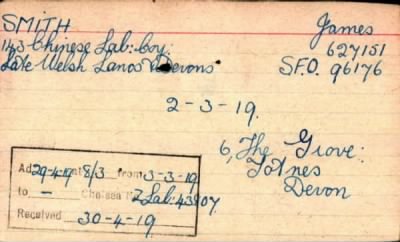 SMITH James
143 Chinese Lab: Coy: 627151
Late Welsh Lancs & Devons S.F.O. 96176
2-3-19.
6, The Grove:
Totnes
Devon
29-4-19 at 8/3 from 3-3-19.
to — Chelsea Z Lab: 43907.
Received 30-4-19